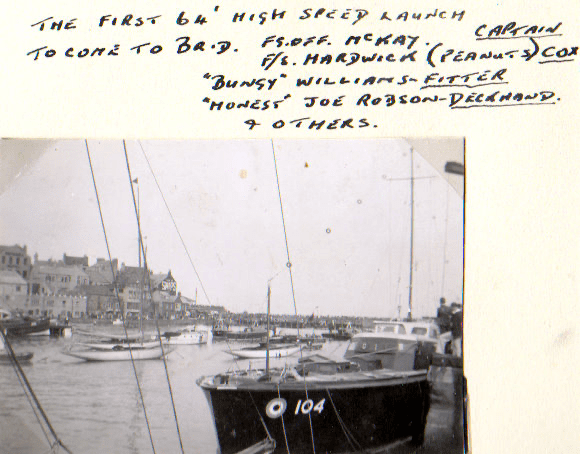 THE FIRST 64' HIGH SPEED LAUNCH
TO COME TO BRID. FG.OFF. MCKAY. CAPTAIN
F/S. HARDWICK (PEANUTS) COX
"BUNGY" WILLIAMS-FITTER
"HONEST" JOE ROBSON-DECKHAND.
& OTHERS.
104